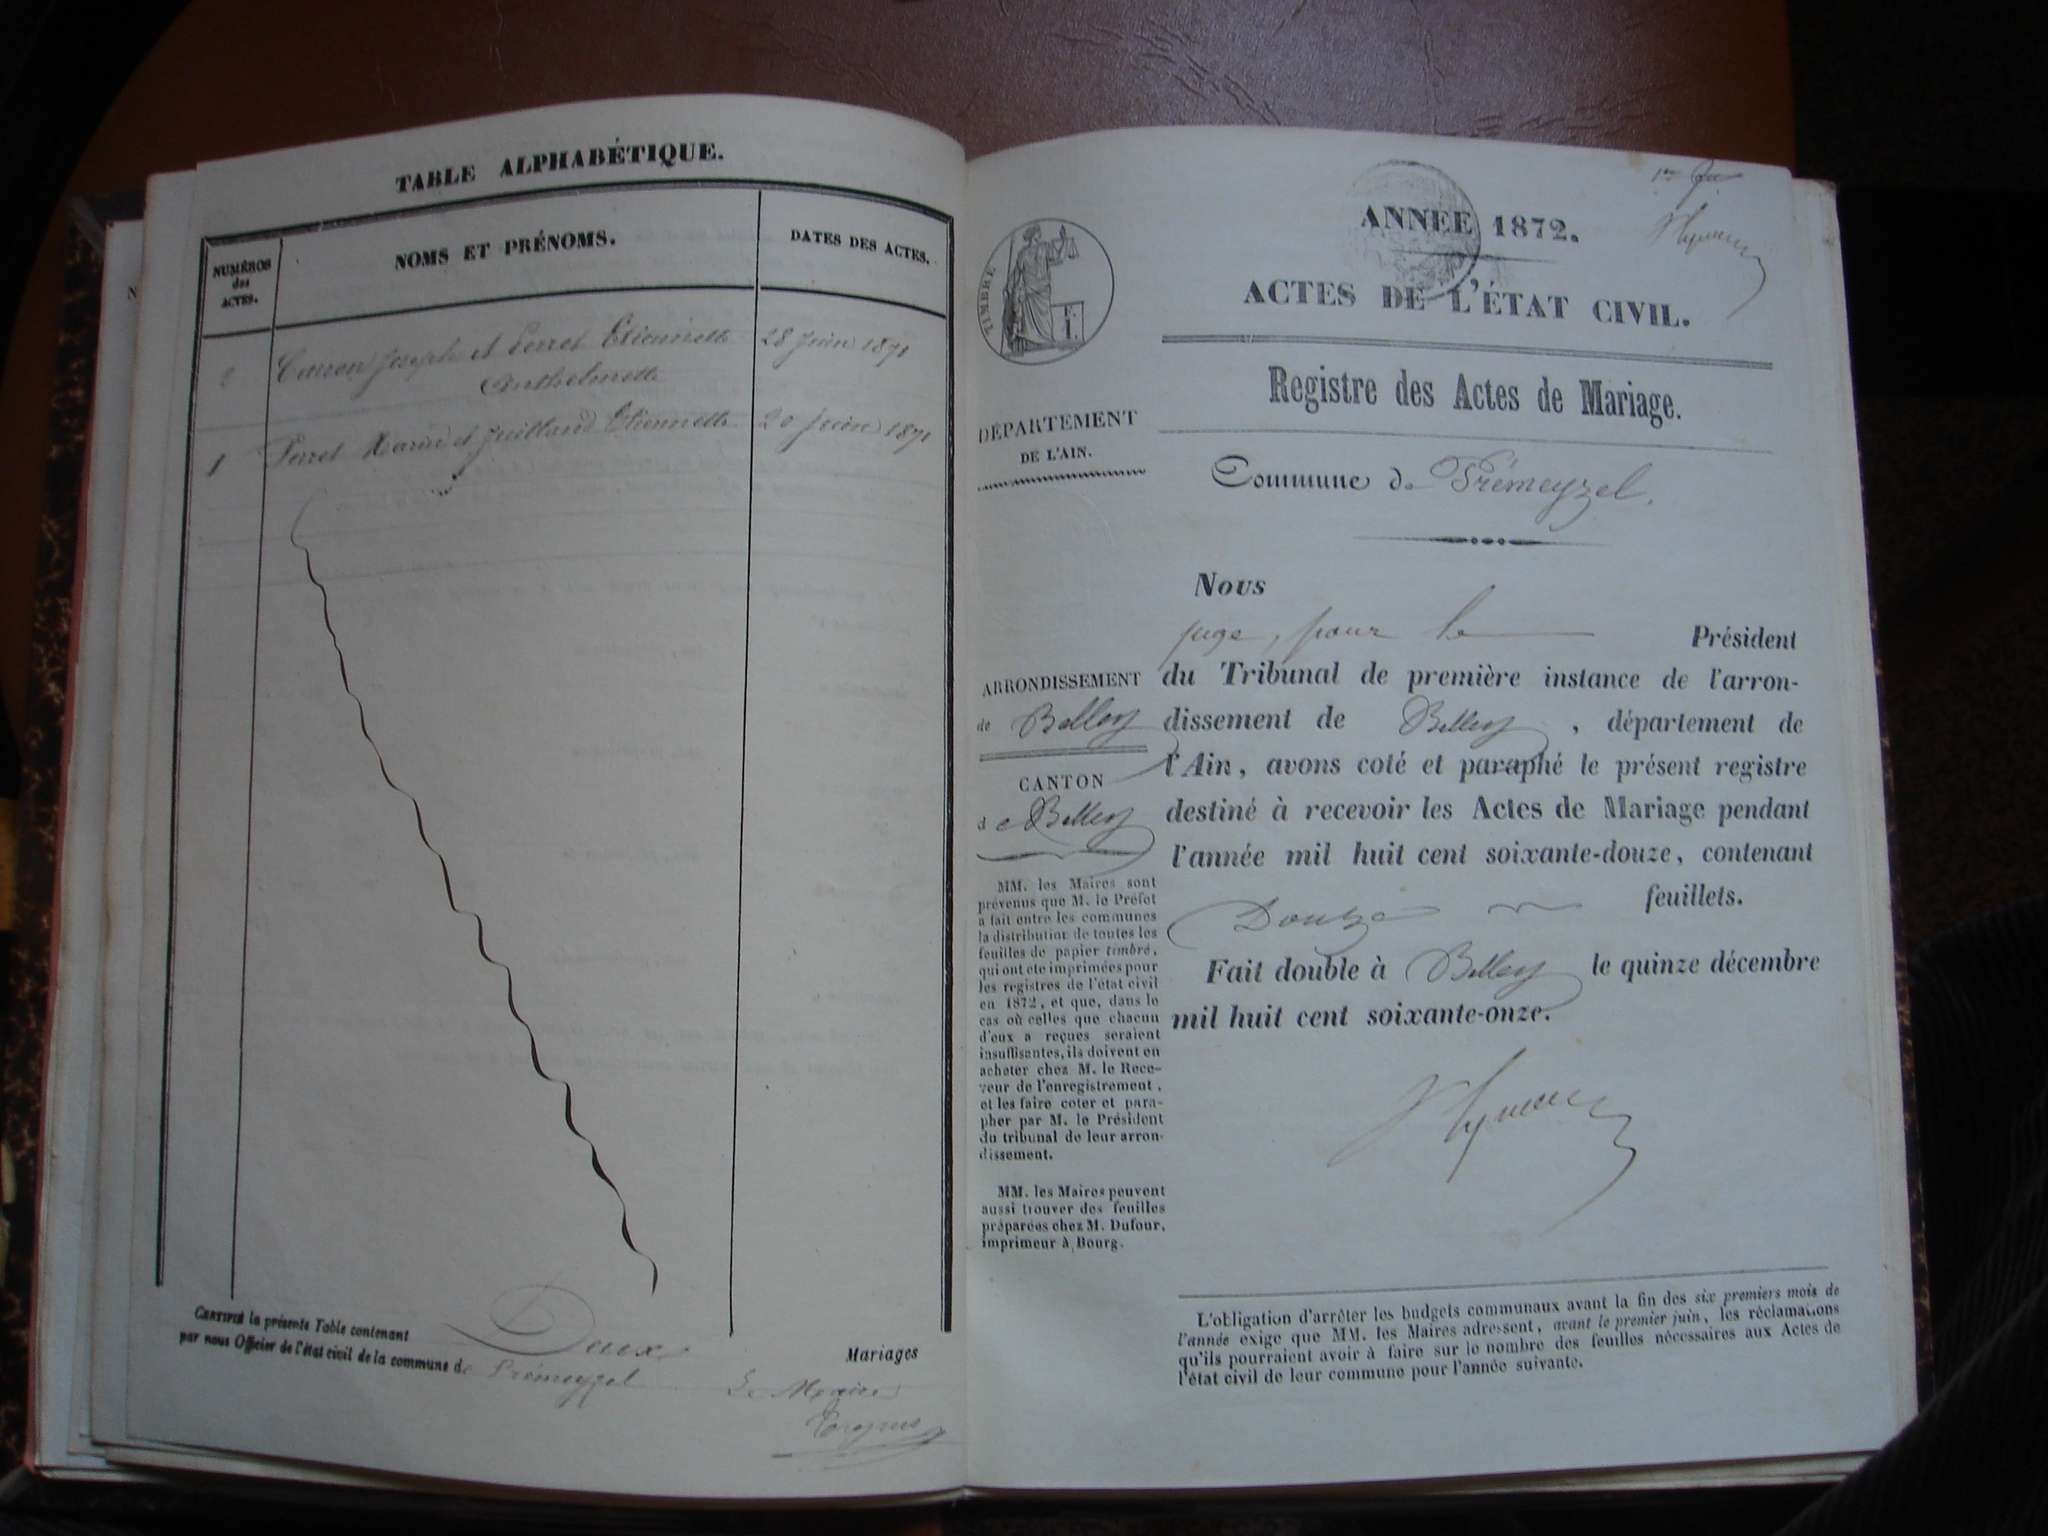 TABLE ALPHABÉTIQUE.
NUMÉROS
des
ACTES.
NOMS ET PRÉNOMS.
DATES DES ACTES.
2 Joseph et Perret Etiennette 28 Juin 1871
Anthelmette
1 Perret Marin et Juilland Etiennette 20 Juin 1871
CERTIFIÉ la présente Table contenant Deux Mariages
par nous Officier de l'état civil de la commune de Prémeyzel
Le Maire
ANNÉE 1872.
ACTES DE L'ÉTAT CIVIL.
Registre des Actes de Mariage.
TIMBRE
DÉPARTEMENT
DE L'AIN.
Commune de Prémeyzel.
Nous
juge, pour le Président
du Tribunal de première instance de l'arron-
dissement de Belley, département de
l'Ain, avons coté et paraphé le présent registre
destiné à recevoir les Actes de Mariage pendant
l'année mil huit cent soixante-douze, contenant
Douze feuillets.
Fait double à Belley le quinze décembre
mil huit cent soixante-onze.
ARRONDISSEMENT
de Belley
CANTON
de Belley
MM. les Maires sont
prévenus que M. le Préfet
a fait entre les communes
la distribution de toutes les
feuilles de papier timbré,
qui ont été imprimées pour
les registres de l'état civil
en 1872, et que, dans le
cas où celles que chacun
d'eux a reçues seraient
insuffisantes, ils doivent en
acheter chez M. le Rece-
veur de l'enregistrement,
et les faire coter et para-
pher par M. le Président
du tribunal de leur arron-
dissement.
MM. les Maires peuvent
aussi trouver des feuilles
préparées chez M. Dufour,
imprimeur à Bourg.
L'obligation d'arrêter les budgets communaux avant la fin des six premiers mois de
l'année exige que MM. les Maires adressent, avant le premier juin, les réclamations
qu'ils pourraient avoir à faire sur le nombre des feuilles nécessaires aux Actes de
l'état civil de leur commune pour l'année suivante.